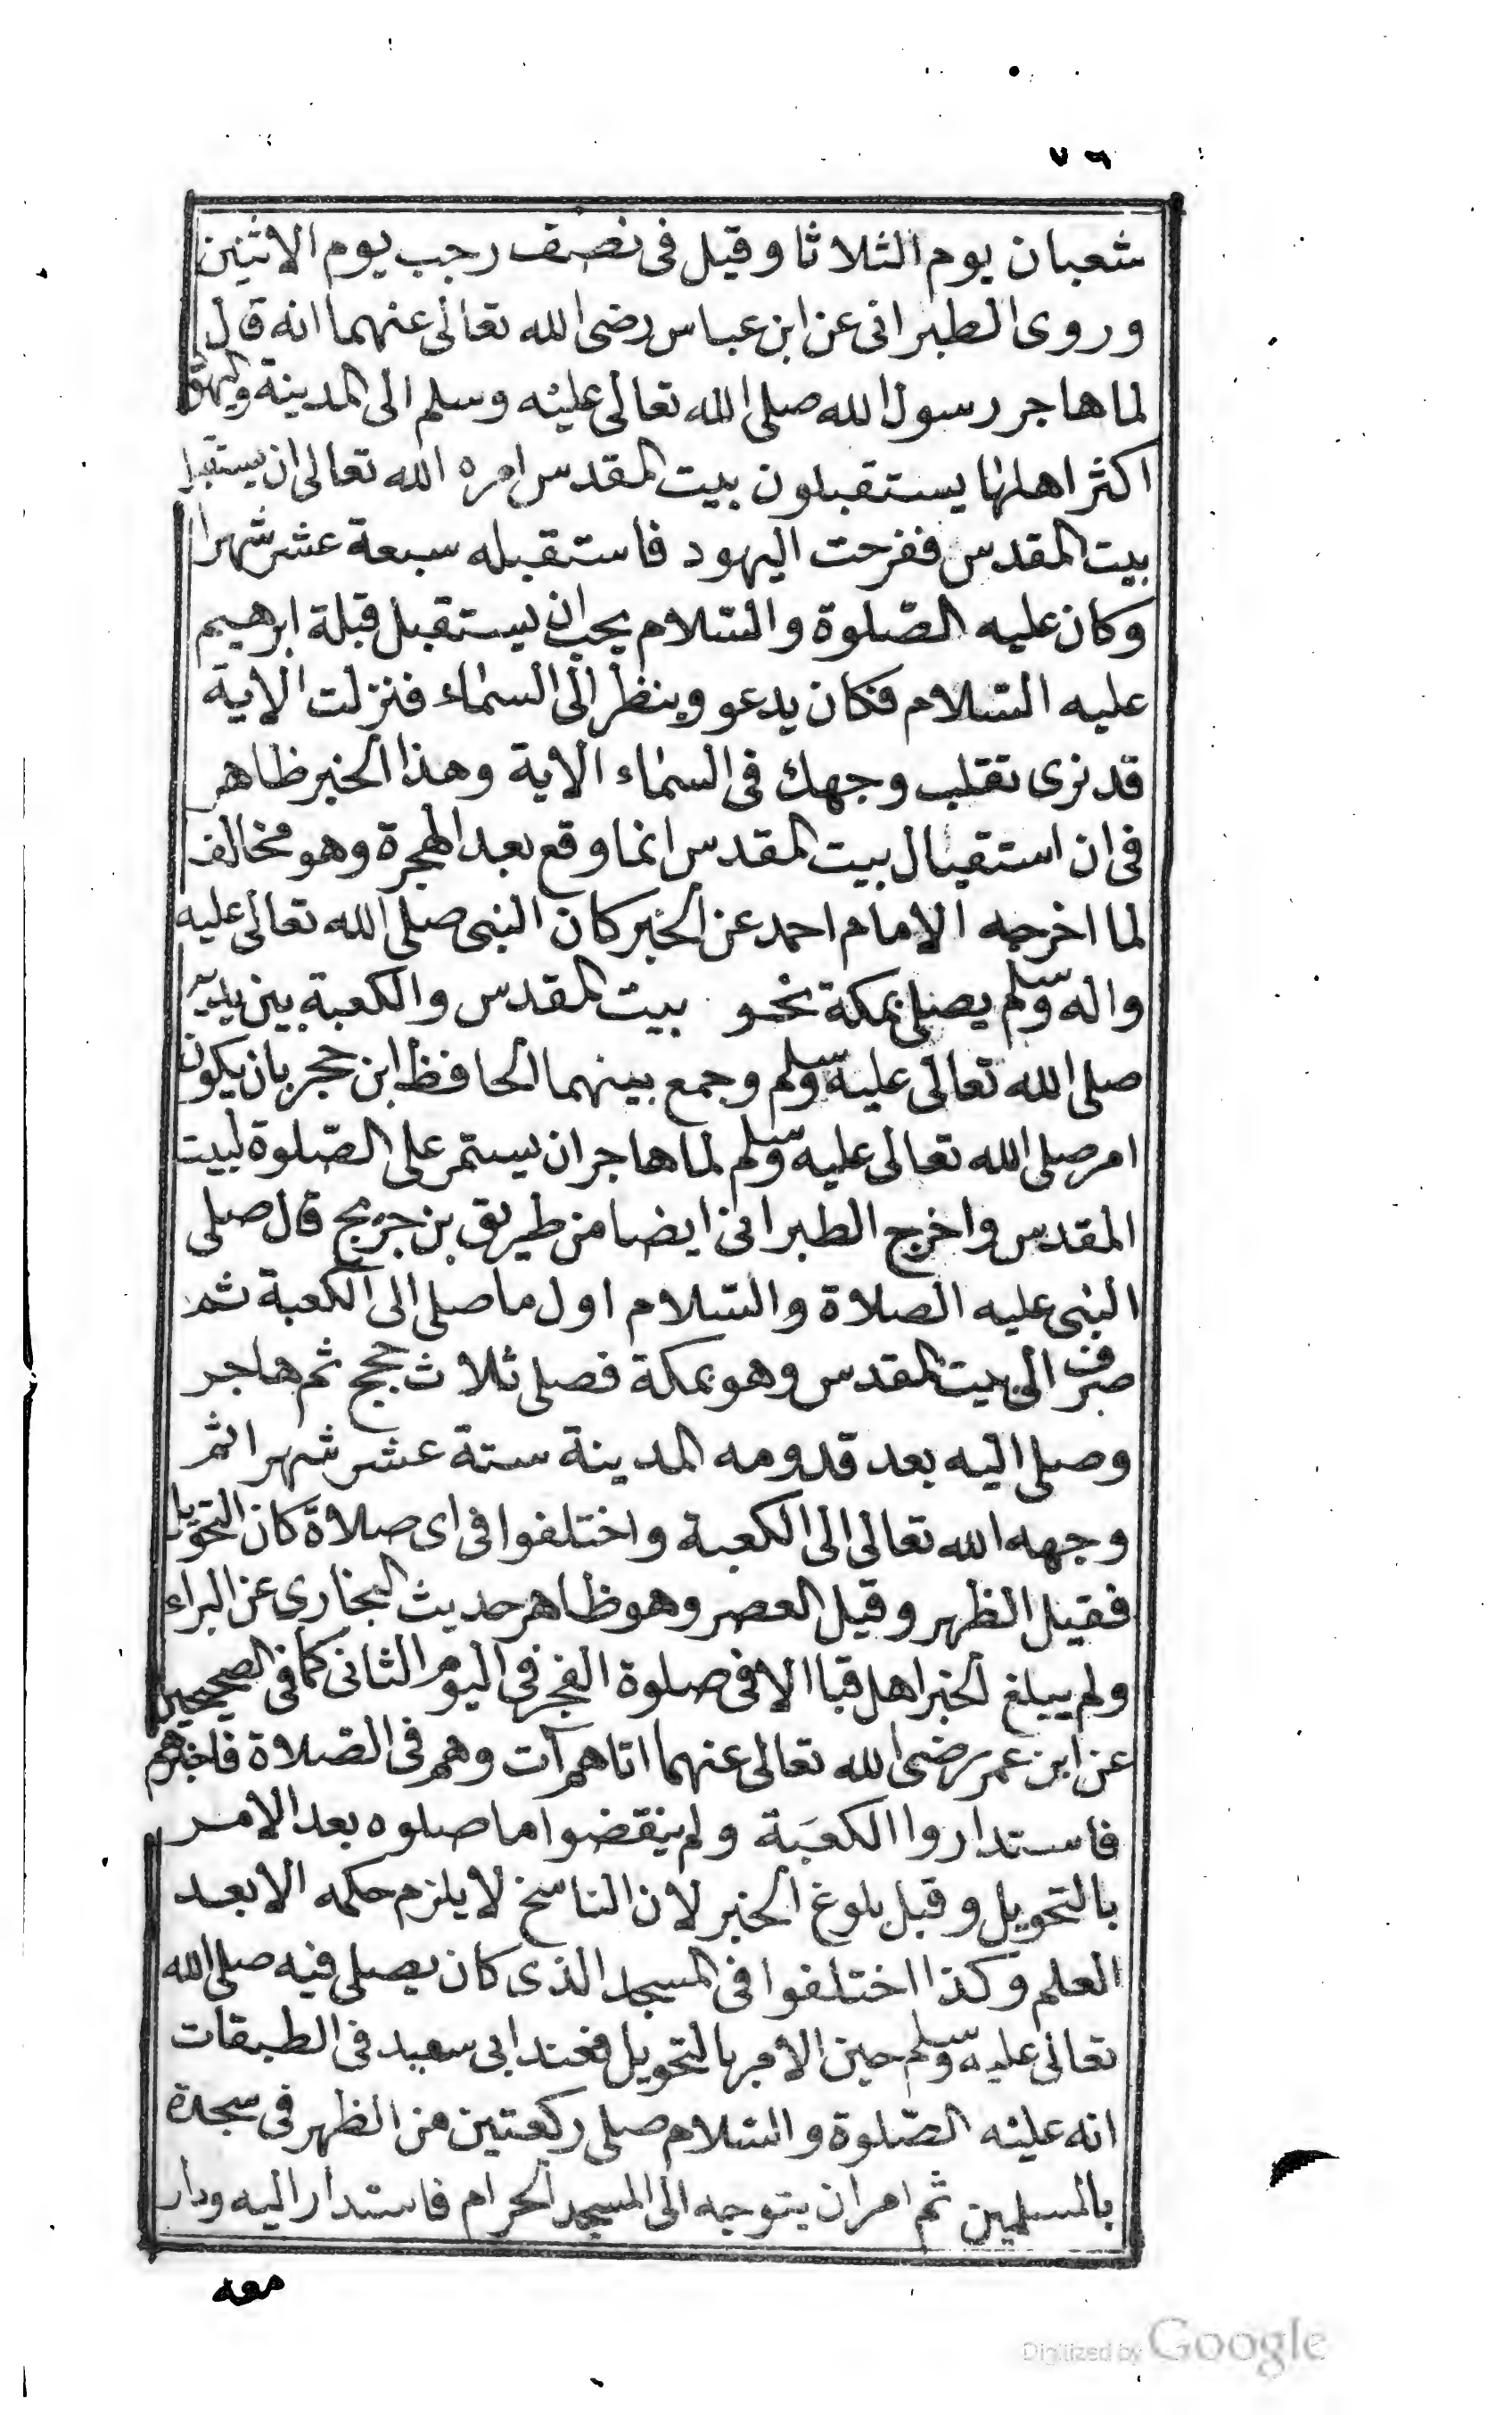 ٧٦
شعبان يوم الثلاثا وقيل فى نصف رجب يوم الاثنين
وروى الطبرانى عن ابن عباس رضى الله تعالى عنهما انه قال
لما هاجر رسول الله صلى الله تعالى عليه وسلم الى المدينة واليهود
اكثر اهلها يستقبلون بيت المقدس امره الله تعالى ان يستقبل
بيت المقدس ففرحت اليهود فاستقبله سبعة عشر شهرا
وكان عليه الصّلوة والسّلام يحب ان يستقبل قبلة ابرهيم
عليه السّلام فكان يدعو وينظر الى السماء فنزلت الاية
قد نرى تقلب وجهك فى السماء الاية وهذا الخبر ظاهر
فى ان استقبال بيت المقدس انما وقع بعد الهجرة وهو مخالف
لما اخرجه الامام احمد عن الخبر كان النبى صلى الله تعالى عليه
واله وسلم يصلى بمكة نحو بيت المقدس والكعبة بين يديه
صلى الله تعالى عليه وسلم وجمع بينهما الحافظ ابن حجر بان يكون
امر صلى الله تعالى عليه وسلم لما هاجر ان يستمر على الصّلوة لبيت
المقدس واخرج الطبرانى ايضا من طريق بن جريج قال صلى
النبى عليه الصلاة والسّلام اول ما صلى الى الكعبة ثم
صرف الى بيت المقدس وهو بمكة فصلى ثلاث حجج ثم هاجر
وصلى اليه بعد قدومه المدينة ستة عشر شهرا ثم
وجهه الله تعالى الى الكعبة واختلفوا فى اى صلاة كان التحويل
فقيل الظهر وقيل العصر وهو ظاهر حديث البخارى عن البراء
ولم يبلغ الخبر اهل قبا الا فى صلوة الفجر فى اليوم الثانى كما فى الصحيحين
عن ابن عمر رضى الله تعالى عنهما اتاهم آت وهم فى الصّلاة فاخبرهم
فاستداروا الكعبَة ولم ينقضوا ما صلوه بعد الامر
بالتحويل وقبل بلوغ الخبر لان الناسخ لا يلزم حكمه الا بعد
العلم وكذا اختلفوا فى المسجد الذى كان يصلى فيه صلى الله
تعالى عليه وسلم حين الامر بالتحويل فعند ابى سعيد فى الطبقات
انه عليه الصّلوة والسّلام صلى ركعتين من الظهر فى سجدة
بالمسلمين ثم امر ان يتوجه الى المسجد الحرام فاستدار اليه ودار
معه
Digitized by Google